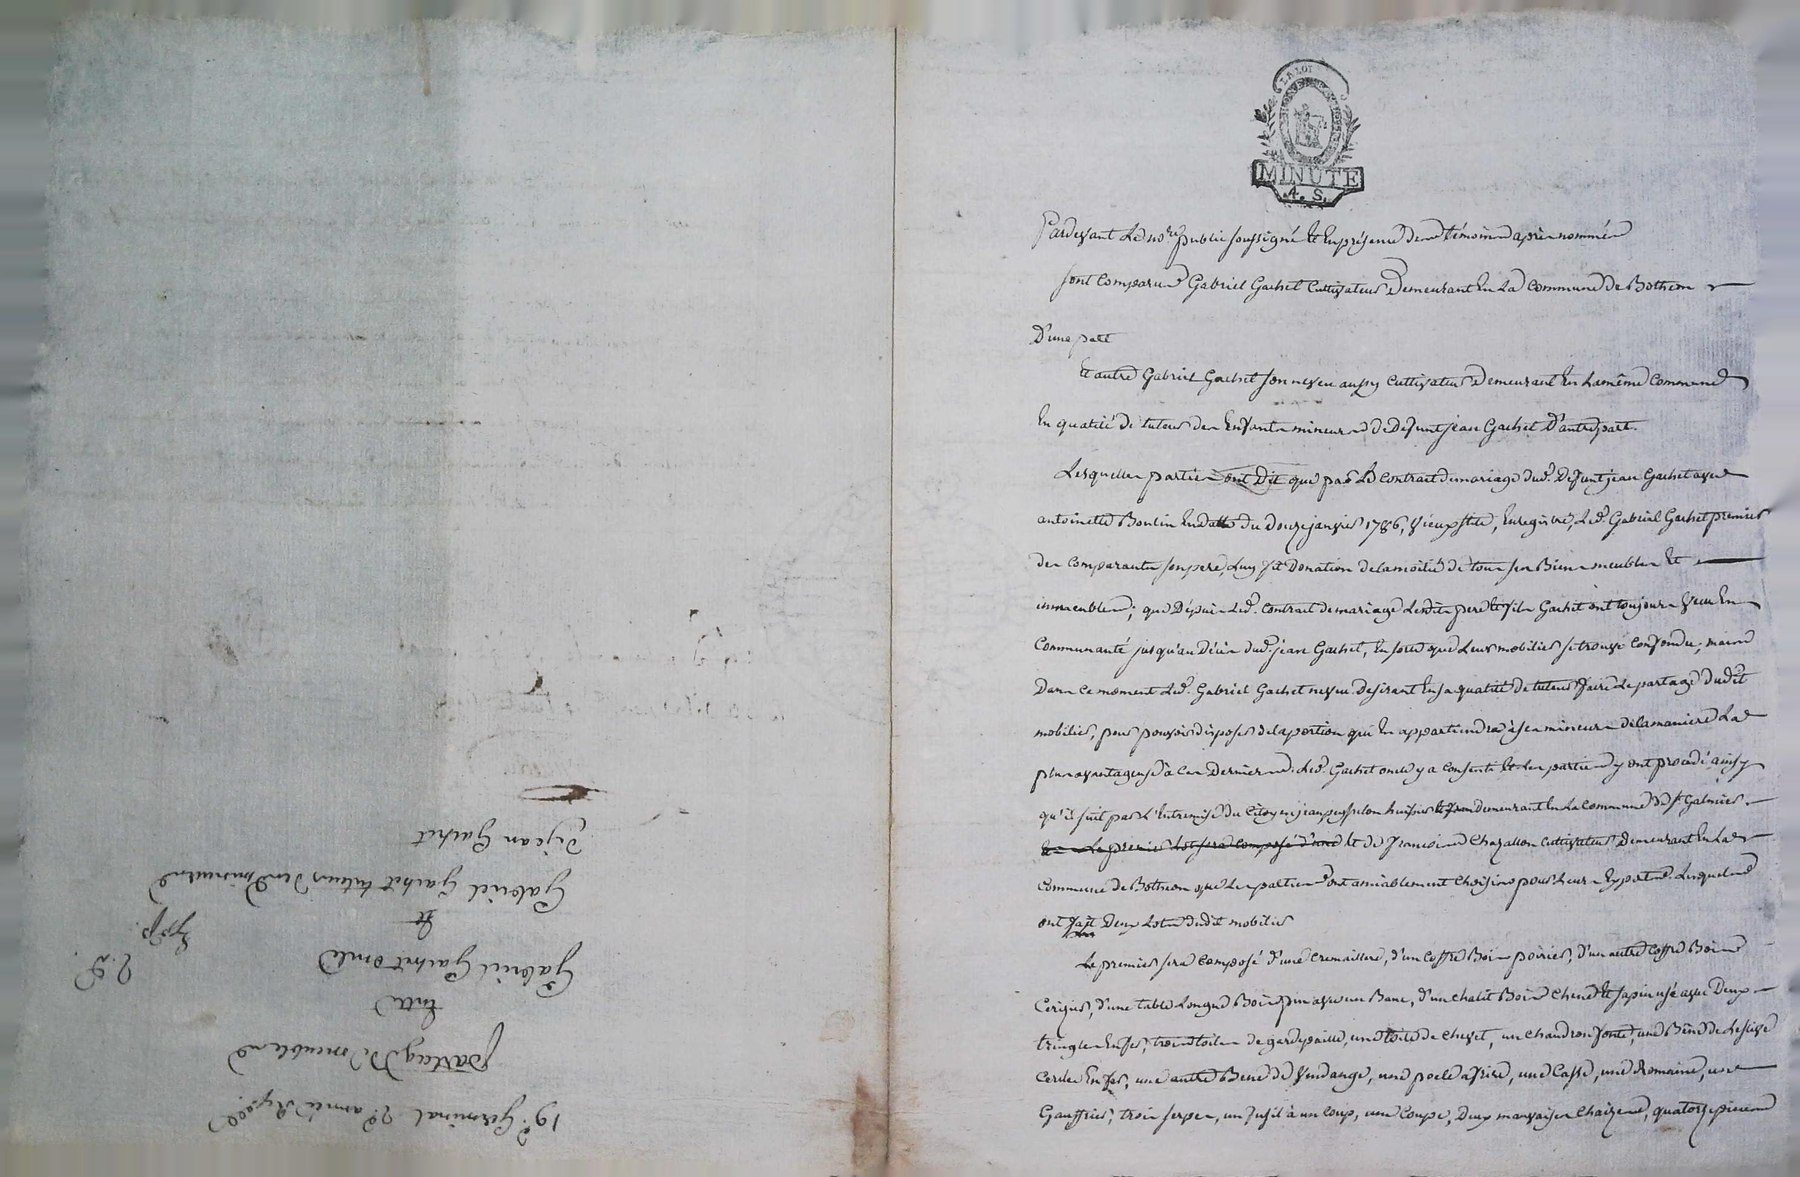 LA LOI
MINUTE
4. S.
Pardevant Le nore public soussigné Et En présence des témoins après nommés
sont comparus Gabriel Gachet Cultivateur Demeurant En La Commune de Botheon
D'une part
Et autre Gabriel Gachet son neveu aussy Cultivateur Demeurant En La même Commune
En qualité de tuteur des Enfants mineurs de Defunt jean Gachet D'autre part.
Lesquelles parties ont Dit que par Le contrat de mariage dud. Defunt jean Gachet avec
antoinette Boulin En datte du Douze janvier 1786, vieux stile, Enregistré, Led. Gabriel Gachet premier
des Comparants son pere, Luy fit Donation de la moitié de tous ses Biens meubles Et
immeubles; que Dépuis Led. Contrat de mariage Lesdits pere Et fils Gachet ont toujours vecu En
Communauté jusqu'au Décès dud. jean Gachet, En sorte que Leur mobilier se trouve confondu; mais
Dans ce moment Led. Gabriel Gachet neveu Desirant En sa qualité de tuteur faire Le partage dudit
mobilier, pour pouvoir disposer de la portion qui En appartiendra à ses mineurs de la maniere La
plus avantageuse à Ces Derniers. Led. Gachet oncle y a Consenti Et Les parties y ont procédé ainsy
qu'il suit par L'Entremise du Citoyen jean peysselon huissier demeurant En La Commune de St Galmier
Le Premier Lot sera Composé d'une Et de françois Chazallon Cultivateur Demeurant En La
Commune de Botheon que Les parties ont amiablement Choisis pour Leurs Experts. Lesquels
ont fait Deux Lots dudit mobilier
Le premier sera Composé d'une Cremaillere, d'un Coffre Bois poirier, d'un autre Coffre Bois
Cerisier, d'une table Longue Bois pin avec un Banc, d'un chalit Bois Chene Et sapin usé avec Deux
tringles En fer, trois toiles de gardepaille, une toile de chevet, un chaudron fonte, une Bene de Lessive
Cerclée En fer, une autre Bene de Vendange, une poele a frire, une Casse, une Romaine, un
Gauffrier, trois serpes, un fusil à un Coup, une Coupe, Deux mauvaises Chaizes, quatorze pieces
19e Germinal 2e année Repub.
partage De meubles
Entre
Gabriel Gachet oncle
Et
Gabriel Gachet tuteur Des mineurs
D. jean Gachet
Exp.